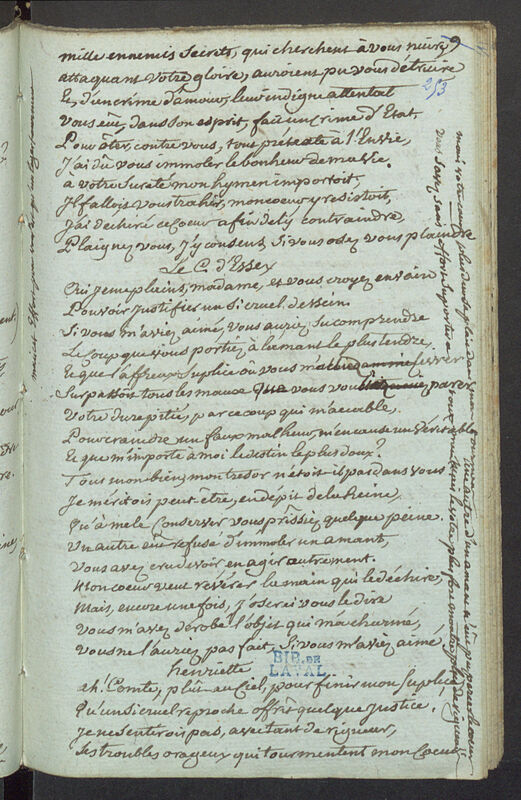 9
253
mille ennemis secrets, qui cherchent à vous nuire,
attaquant votre gloire, auroient pu vous détruire
Et, d'un crime d'amour, leur indigne attentat
Vous eut, dans son esprit, fait un crime d'Etat.
Pour ôter, contre vous, tous prétexte à l'Envie,
J'ai dû vous immoler le bonheur de ma vie.
a votre sureté mon hymen importoit,
Il falloit vous trahir, mon coeur y resistoit,
J'ai déchiré ce Coeur afin de l'y contraindre,
Plaignez vous, j'y consent, Si vous osez vous plaindre
Le C. d'Essex
Oui je me plains, madame, et vous croyez en vain
Pouvoir justifier un Si cruel dessein.
Si vous m'aviez aimé, vous auriez Su comprendre
Le Coup que vous portiez à l'amant le plus tendre
Et que l'affreux Suplice où vous m'
Surpassoit tous les maux vous parer
Votre dure pitié, par ce coup qui m'accable,
Pour craindre un faux malheur, m'en cause un véritable
Et que m'importe à moi le destin le plus doux?
Tous mon bien, mon tresor n'étoit-il pas dans vous
Je méritois peut-etre, en depit de la haine,
Qu'à me le Conserver vous prissiez quelque peine.
Un autre eut refusé d'immoler un amant,
Vous avez cru devoir en agir autrement.
Mon coeur veut révérer la main qui le déchire,
Mais, encore une fois, j'oserai vous le dire
Vous m'avez dérobé l'objet qui m'a charmé,
Vous ne l'auriez pas fait, Si vous m'aviez aimé
henriette
ah! Comte, plut au Ciel, pour finir mon Suplice
Qu'un Si cruel reproche offrit quelque Justice,
Je ne Sentirois pas, avec tant de rigueur,
Les troubles orageux qui tourmentent mon Coeur
BIB. DE
LAVAL